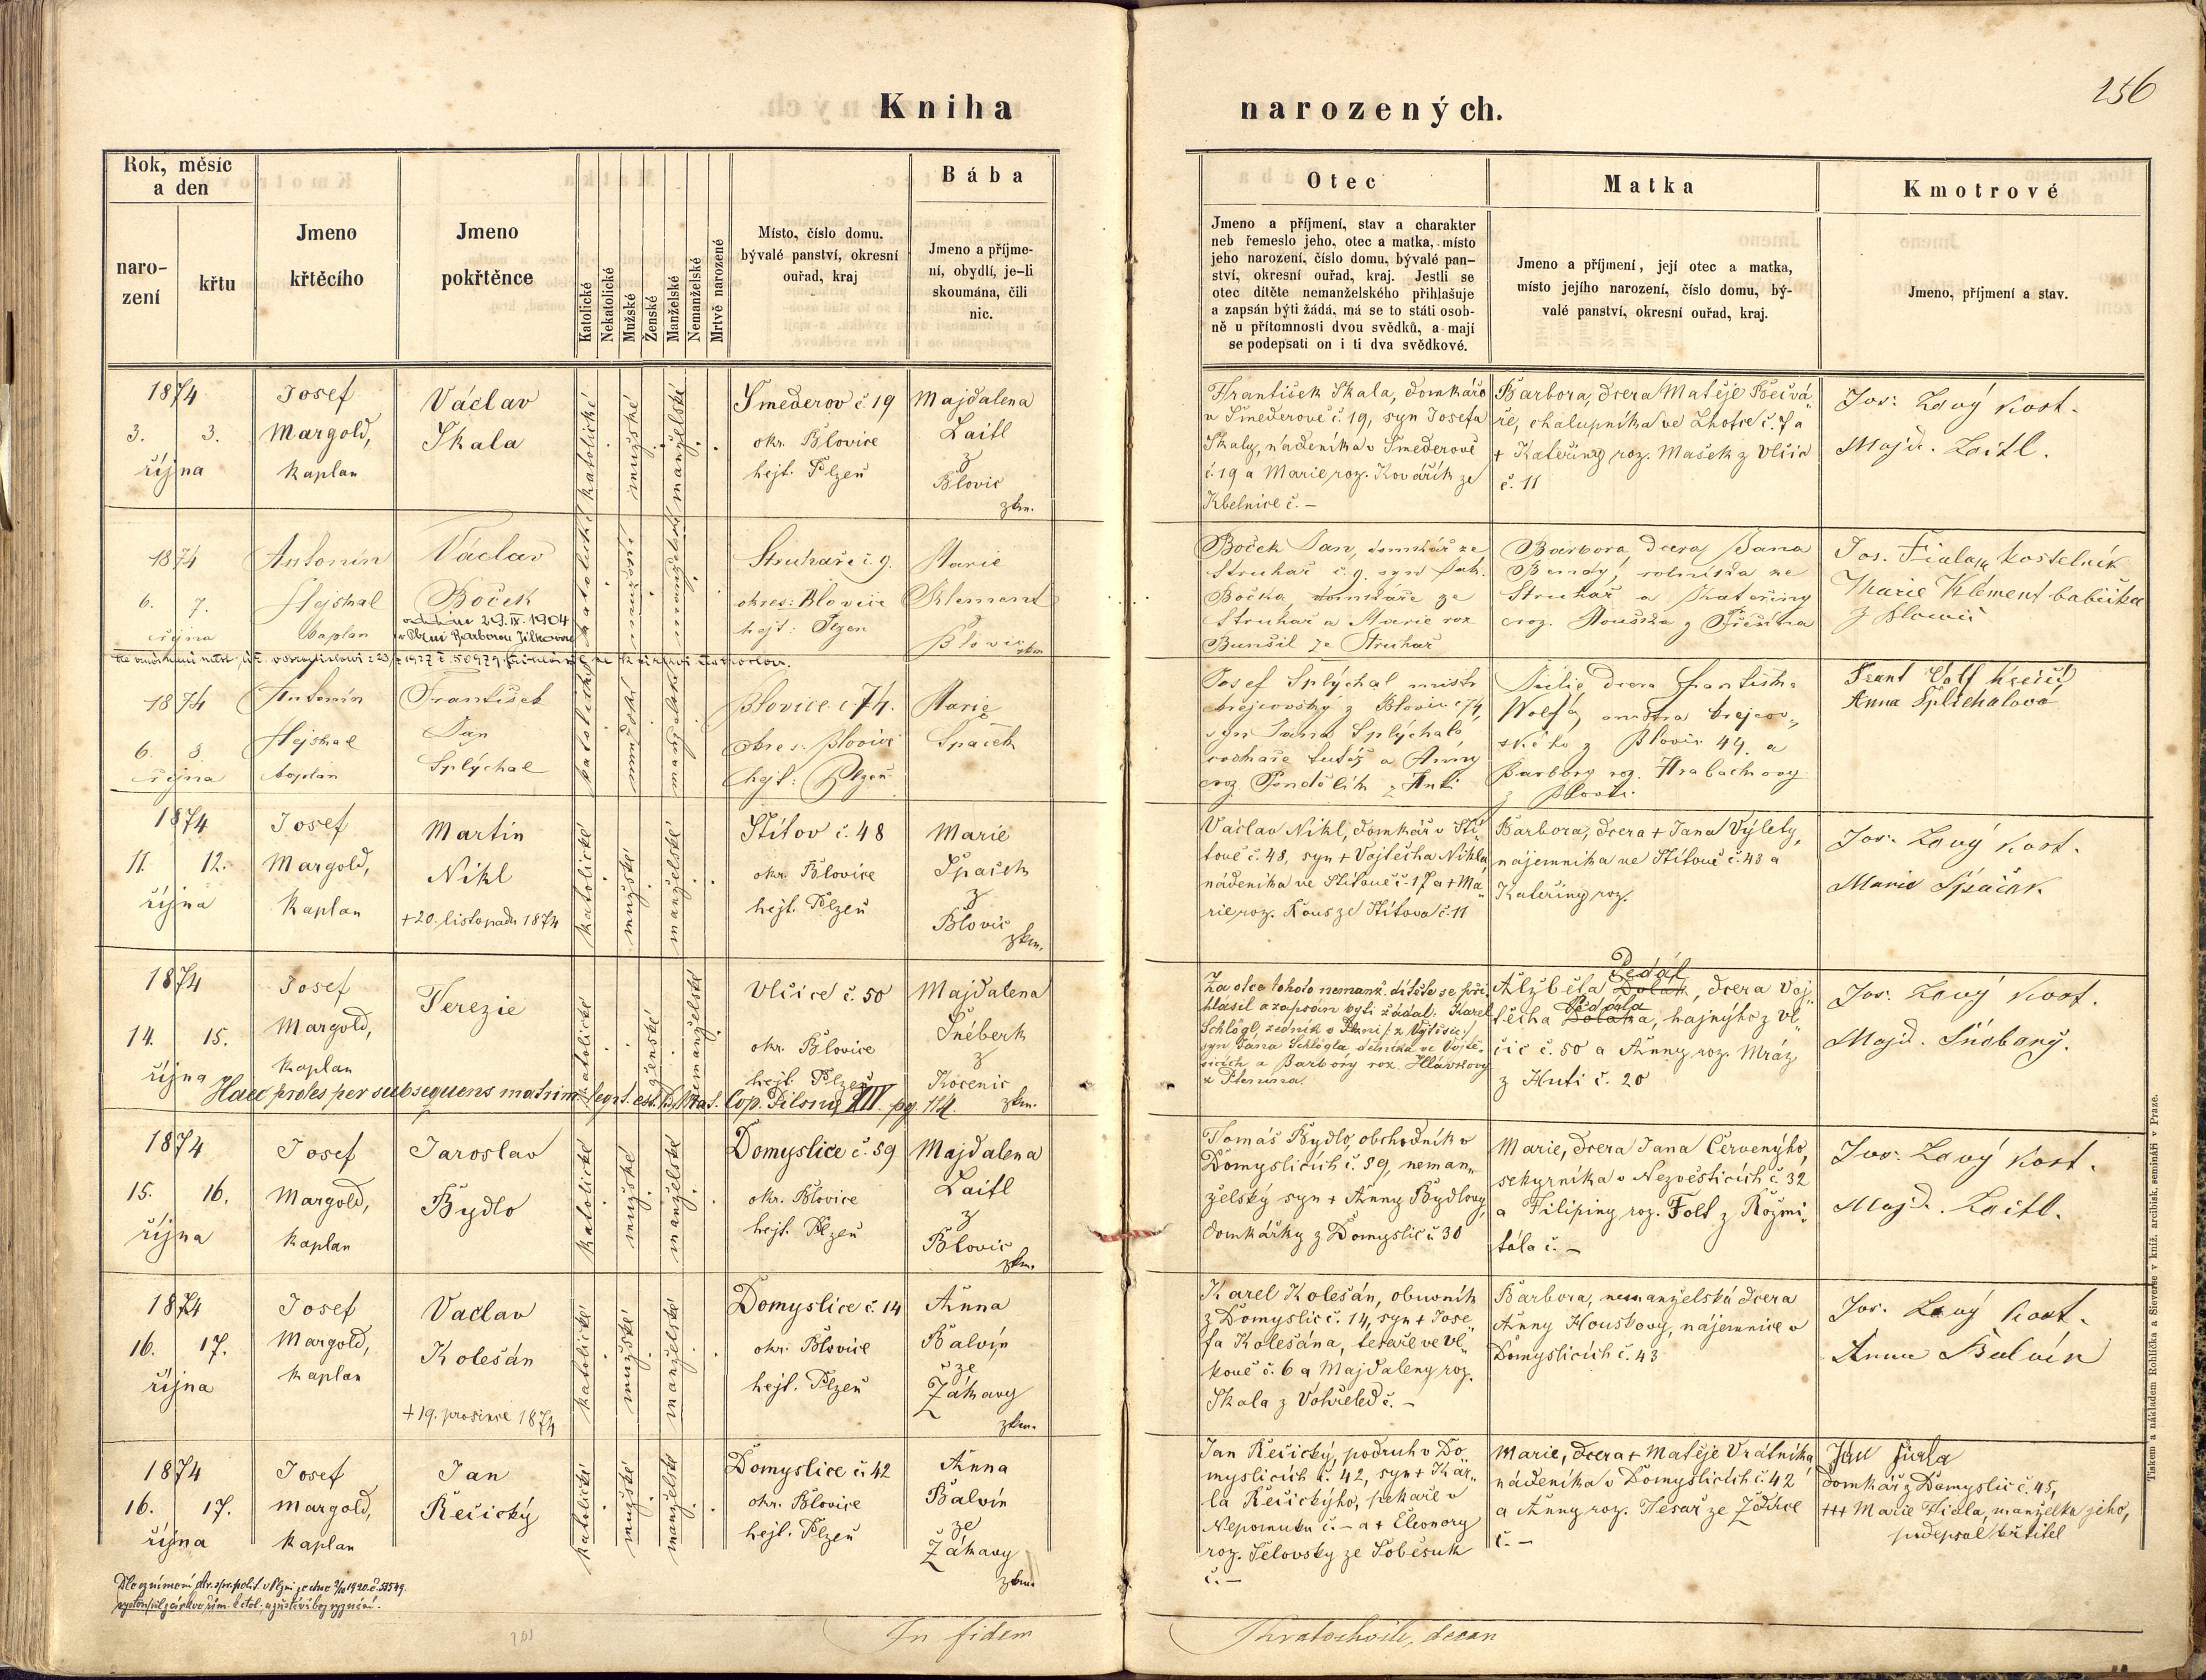 256
Kniha narozených.
Rok, měsíc
a den
naro-
zení
křtu
Jmeno
křtěcího
Jmeno
pokřtěnce
Katolické
Nekatolické
Mužské
Ženské
Manželské
Nemanželské
Mrtvě narozené
Místo, číslo domu,
bývalé panství, okresní
ouřad, kraj
Bába
Jmeno a příjme-
ní, obydlí, je-li
skoumána, čili
nic.
Otec
Jmeno a příjmení, stav a charakter
neb řemeslo jeho, otec a matka, místo
jeho narození, číslo domu, bývalé pan-
ství, okresní ouřad, kraj. Jestli se
otec dítěte nemanželského přihlašuje
a zapsán býti žádá, má se to státi osob-
ně u přítomnosti dvou svědků, a mají
se podepsati on i ti dva svědkové.
Matka
Jmeno a příjmení, její otec a matka,
místo jejího narození, číslo domu, bý-
valé panství, okresní ouřad, kraj.
Kmotrové
Jmeno, příjmení a stav.
1874
3. 3.
října
Josef
Margold,
kaplan
Václav
Skala
katolické
mužské
manželské
Smederov č 19
okr. Blovice
hejt. Plzeň
Majdalena
Laitl
z
Blovic
zkm.
František Skala, domkář
v Smederově č. 19, syn Josefa
Skaly, nádeníka v Smederově
č. 19 a Marie roz. Kovářík ze
Kbelnice č. –
Barbora, dcera Matěje Pečivá
ře, chalupníka ve Lhotce č. 7 a
+ Kateřiny roz. Mašek z Vlčic
č. 11
Jos. Lový kost.
Majd. Laitl.
1874
6. 7.
října
Antonín
Hejskal
kaplan
Václav
Boček
oddán 29. IX. 1904
v Plzni Barborou Jílkovou
katolické
manželské
Struhaře č. 9.
okres: Blovice
hejt: Plzen
Marie
Klement
Blovic
zkm
Boček Jan, domkář ze
Struhař č. 9. syn Jak.
Bočka domkáře ze
Struhař a Marie roz
Bunšil ze Struhař
Barbora, dcera Jana
Bendy, rolníka ze
Struhař a Kateřiny
roz. Houška z
Jos. Fiala, kostelník
Marie Klement babička
z Blovic
1874
6. 8.
října
Antonín
Hejskal
kaplan
František
Jan
Splýchal
katolický
mužské
manželské
Blovice č 74.
okres: Blovice
hejt: Plzeň
Marie
Špaček
Josef Splýchal mistr
krejčovský z Blovic č 74,
syn Jana Splýchala,
tutéž a Anny
roz. Pondělík z Huti
Julie dcera Františka
Wolfa, mistra krejčov
ského z Blovic 44. a
Barbory roz. Hrabačkovy
z Blovic.
Frant Wolf krejčí
Anna Šplichalová
1874
11. 12.
října
Josef
Margold,
kaplan
Martin
Nikl
+ 20. listopadu 1874
katolické
mužské
manželské
Štítov č. 48
okr. Blovice
hejt. Plzeň
Marie
Špaček
z
Blovic
zkm.
Václav Nikl, domkář v Ští
tově č. 48, syn + Vojtěcha Nikla,
nádeníka ve Štítově č. 17 a + Ma
rie roz. Kous ze Štítova č. 11
Barbora, dcera + Jana Výlety,
nájemníka ve Štítově č. 43 a
Kateřiny roz.
Jos. Lový kost.
Marie Špaček
1874
14. 15.
října
Josef
Margold,
kaplan
Terezie
katolické
ženské
nemanželské
Vlčice č. 50
okr. Blovice
hejt. Plzeň
Majdalena
Šnéberk
z
Kocenic
zkm.
Haec proles per subsequens matrim. legit. est. Cop. Pilsnae XIV. pg. 114.
Za otce tohoto nemanž. dítěte se při
hlásil a zapsán býti žádal: Karel
Schlögl, zedník v Plzni
syn Jána Schlögla dělníka ve
a Barbory roz. Hlávkovy
z Plenuma.
Pedál
Alžběta Dolák, dcera Voj
Pedála
těcha Doláka, hajného z Vl
čic č. 50 a Anny roz. Mráz
z Huti č. 20
Jos. Lový kost.
Majd. Šnobery.
1874
15. 16.
října
Josef
Margold,
kaplan
Jaroslav
Bydlo
katolické
mužské
manželské
Domyslice č. 59
okr. Blovice
hejt. Plzeň
Majdalena
Laitl
z
Blovic
zkm.
Tomáš Bydlo, obchodník v
Domyslicích č. 59, neman
želský syn + Anny Bydlovy,
domkářky z Domyslic č 30
Marie, dcera Jana Červenýho,
sekyrníka v Nezvěsticích č. 32
a Filipiny roz. Folt z Rožmi
tála č. –
Jos. Lový kost.
Majd. Laitl.
1874
16. 17.
října
Josef
Margold,
kaplan
Vaclav
Kolešán
+ 19. prosince 1874
katolické
mužské
manželské
Domyslice č. 14
okr. Blovice
hejt. Plzeň
Anna
Balvín
ze
Zákavy
zkm.
Karel Kolešán, obuvník
z Domyslic č. 14, syn + Jose
fa Kolešána, tesaře ve Vl
kově č. 6 a Majdaleny roz.
Skala z Vohřeled č. –
Barbora, nemanželská dcera
Anny Houskovy, nájemnice v
Domyslicích č. 43
Jos. Lový kost.
Anna Balvín
1874
16. 17.
října
Josef
Margold,
kaplan
Jan
Řečický
katolické
mužské
manželské
Domyslice č. 42
okr. Blovice
hejt. Plzeň
Anna
Balvín
ze
Zákavy
zkm.
Jan Řečický, podruh v Do
myslicích č. 42, syn + Kar
la Řečickýho, pekaře v
Nepomuku č. – a + Eleonory
roz. Selovsky ze Soběsuk
č. –
Marie, dcera + Matěje Vrátníka,
nádeníka v Domyslicích č. 42
a Anny roz. Tesař ze Zdírce
č. –
Jan Fiala
domkář z Domyslic č. 45,
+++ Marie Fiala, manželka jeho,
podepsal křtitel
In fidem
Kratochvíle, decan
Tiskem a nákladem Rohlíčka a Sieverse v kníž. arcibisk. semináři v Praze.